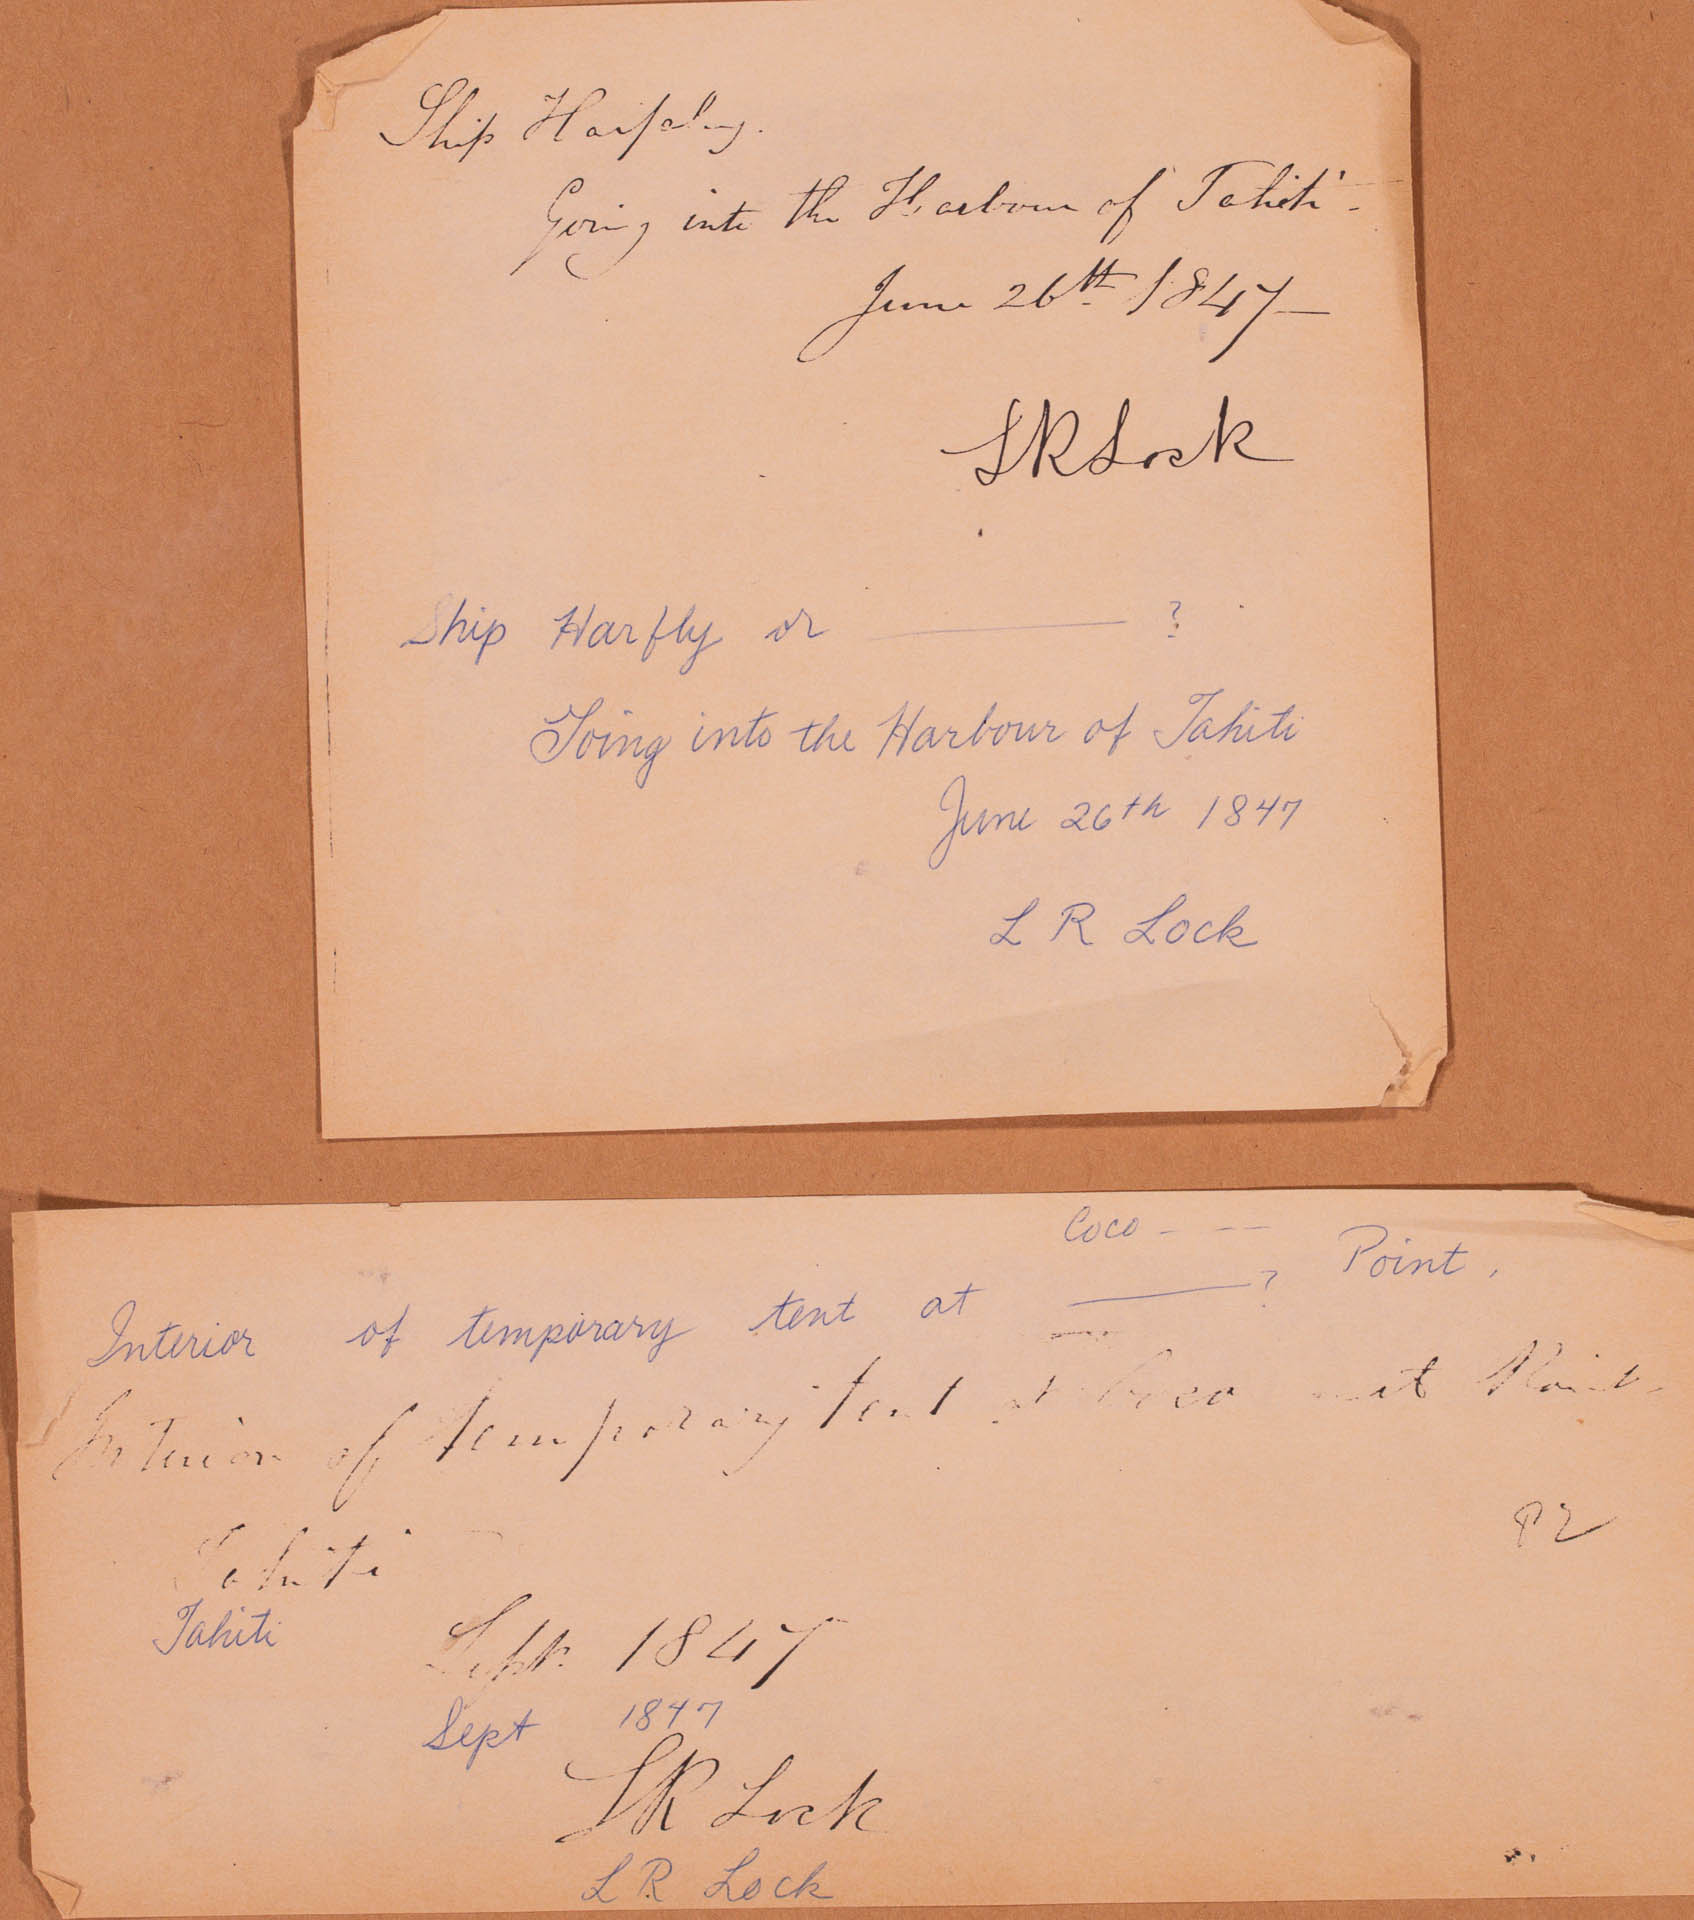 Ship Harpley.
Going into the Harbour of Tahiti -
June 26th 1847 -
L R Lock
Ship Harfly or ——— ?
Going into the Harbour of Tahiti
June 26th 1847
L R Lock
Coco - --
Interior of temporary tent at ——— ? Point.
Interior of temporary tent at Coco Point
Tahiti
Tahiti
Sept. 1847
Sept 1847
L R Lock
L R Lock